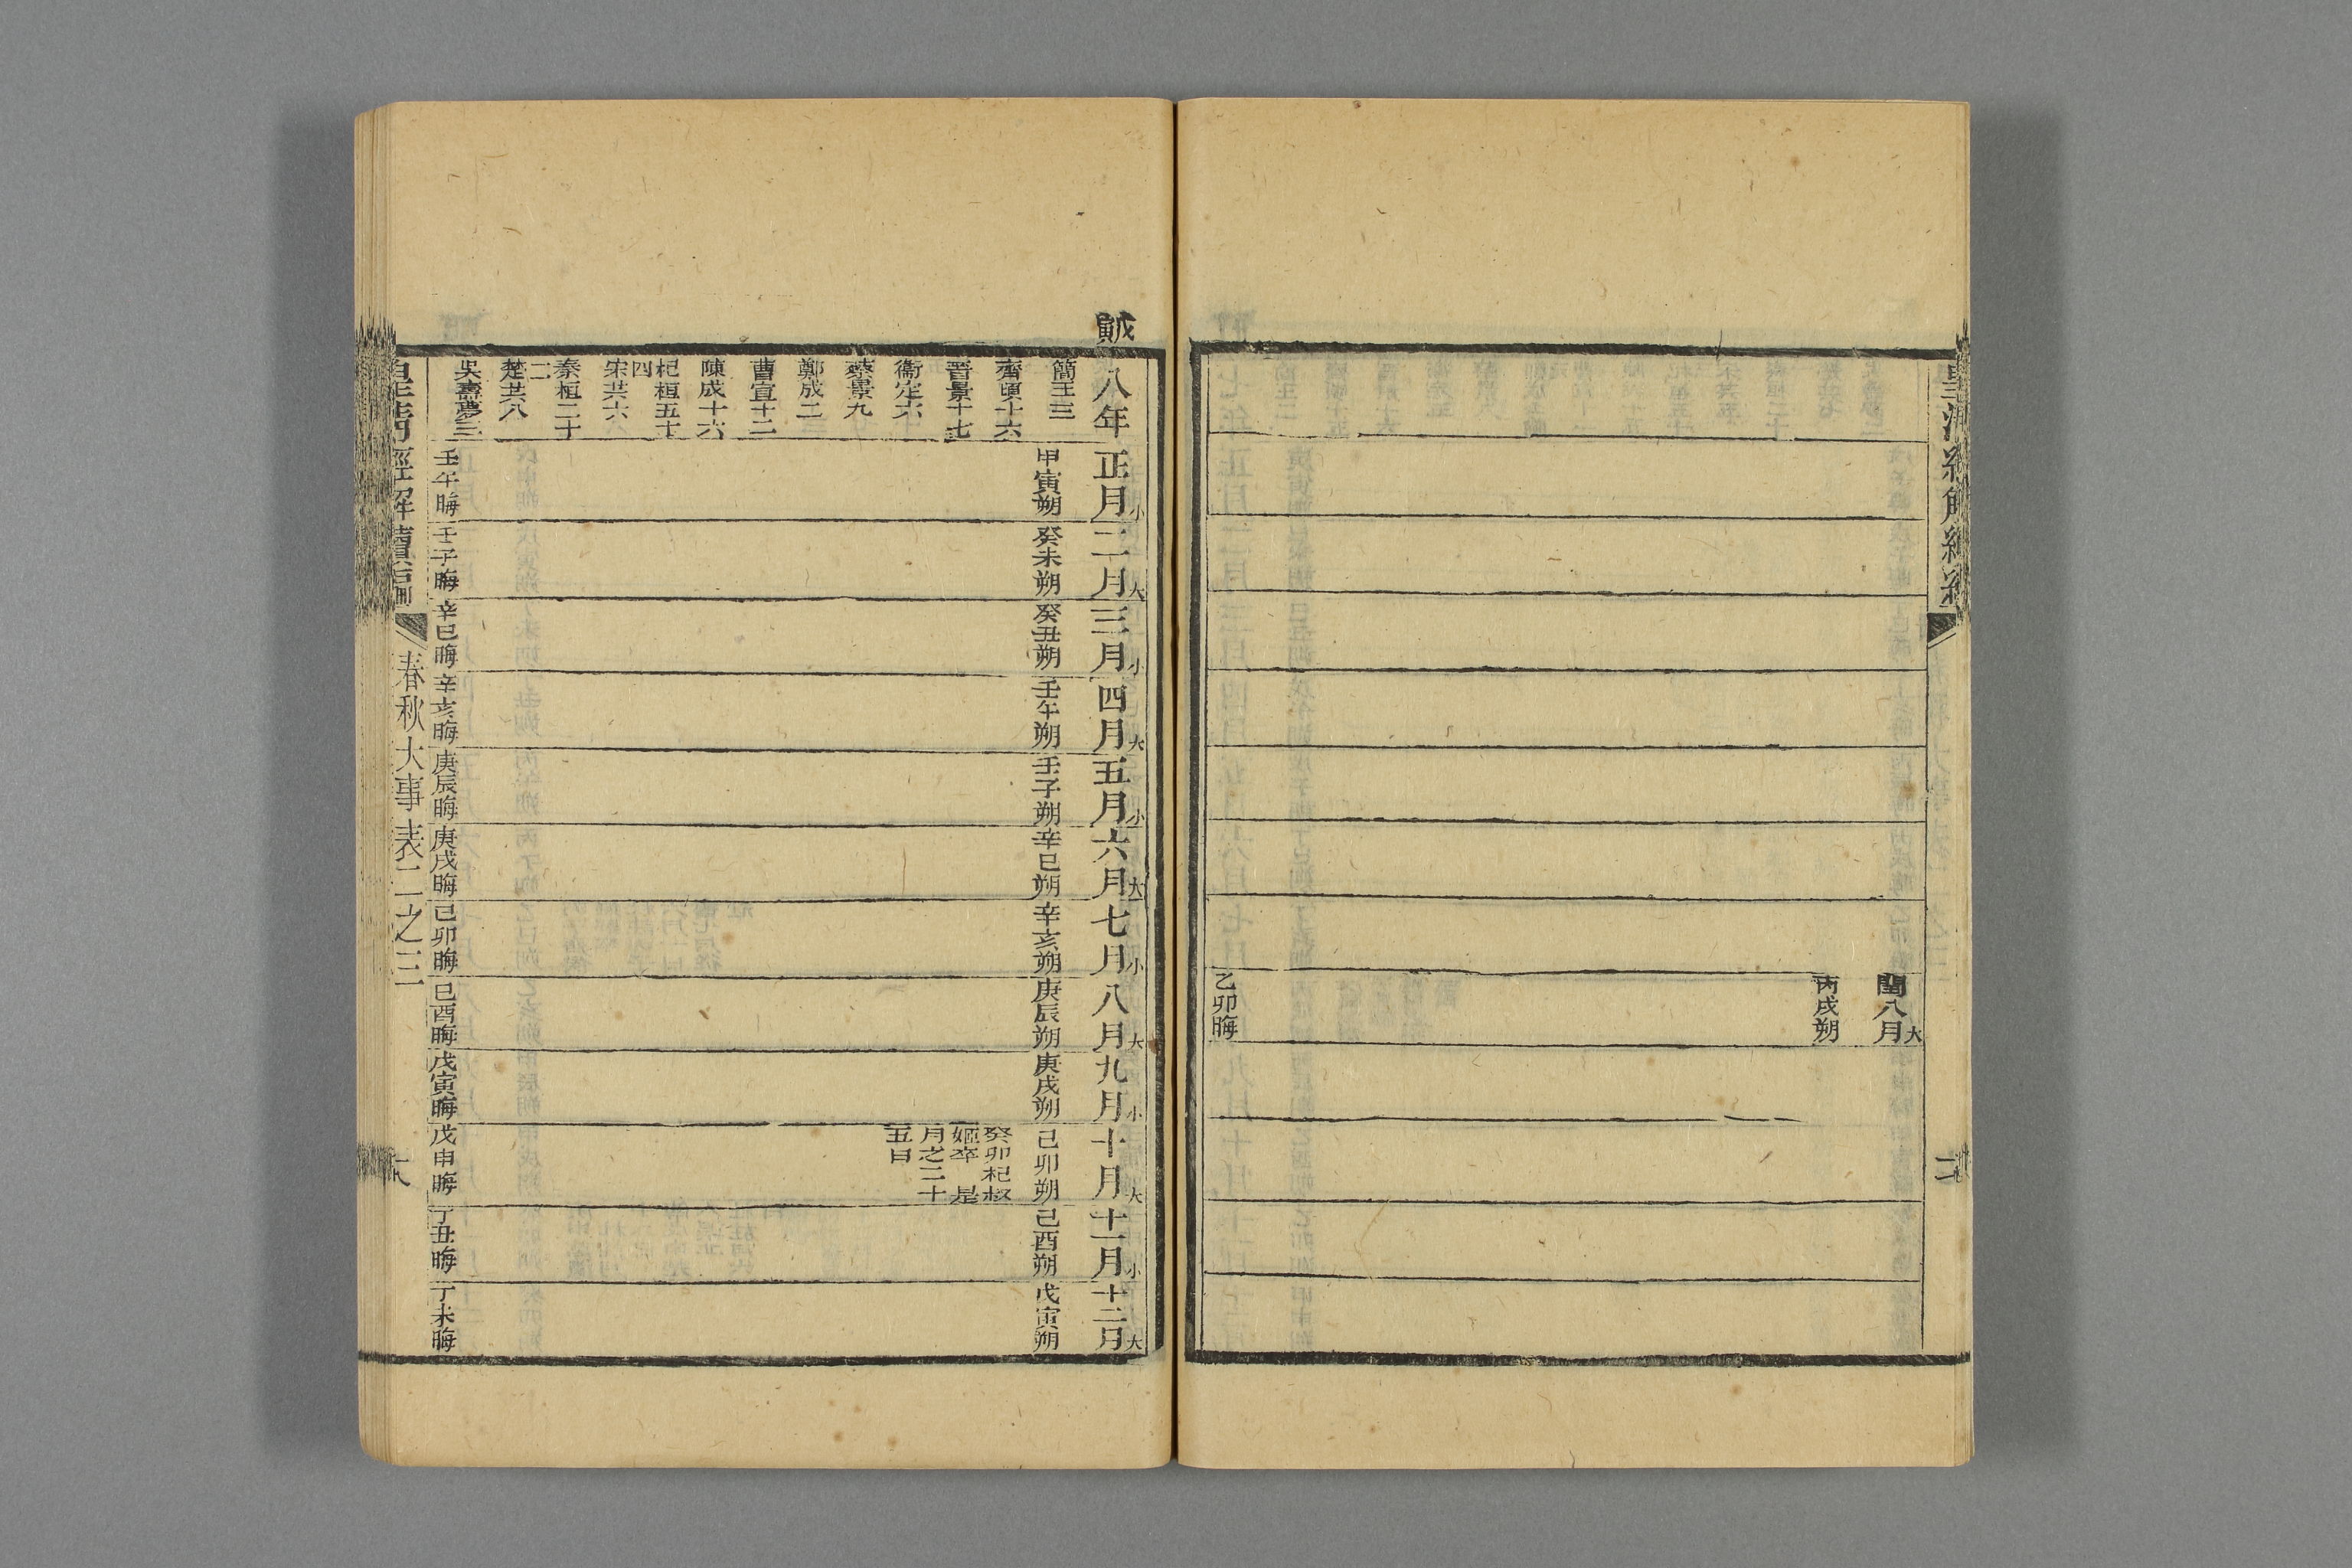 皇清經解續編
閏八月大
丙戌朔
乙卯晦
戊寅
八年
正月小
二月大
三月小
四月大
五月小
六月大
七月小
八月大
九月小
十月大
十一月小
十二月大
簡王三
齊頃十六
晉景十七
衞定六
蔡景九
鄭成二
曹宣十二
陳成十六
杞桓五十
四
宋共六
秦桓二十
二
楚共八
吳壽夢三
甲寅朔
壬午晦
癸未朔
壬子晦
癸丑朔
辛巳晦
壬午朔
辛亥晦
壬子朔
庚辰晦
辛巳朔
庚戌晦
辛亥朔
己卯晦
庚辰朔
己酉晦
庚戌朔
戊寅晦
己卯朔
癸卯杞叔
姬卒 是
月之二十
五日
戊申晦
己酉朔
丁丑晦
戊寅朔
丁未晦
皇清經解續編
春秋大事表二之三